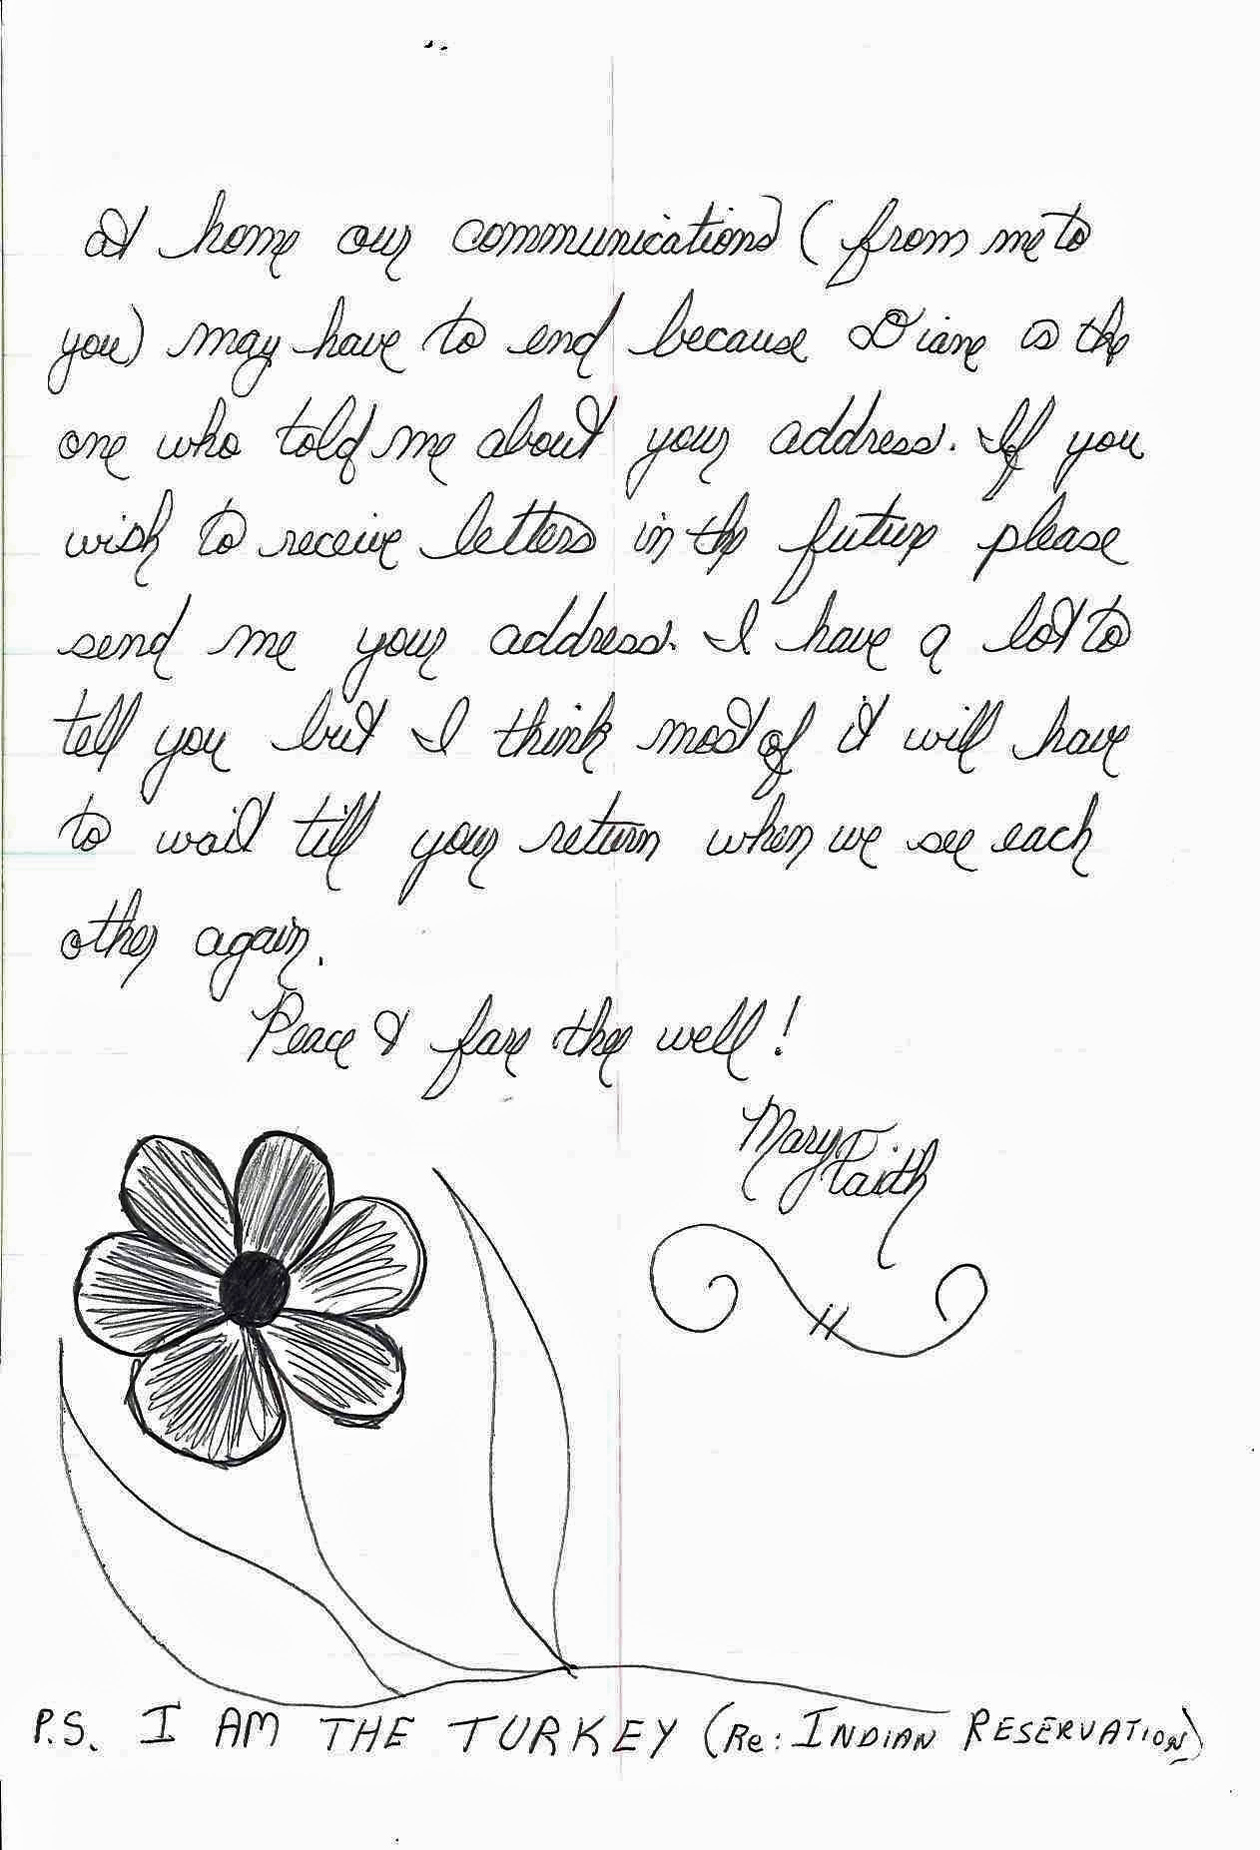 at home our communications (from me to
you) may have to end because Diane is the
one who told me about your address. If you
wish to receive letters in the future please
send me your address. I have a lot to
tell you but I think most of it will have
to wait till your return when we see each
other again.
Peace & fare thee well!
Mary Faith
P.S. I AM THE TURKEY (Re: INDIAN RESERVATION)